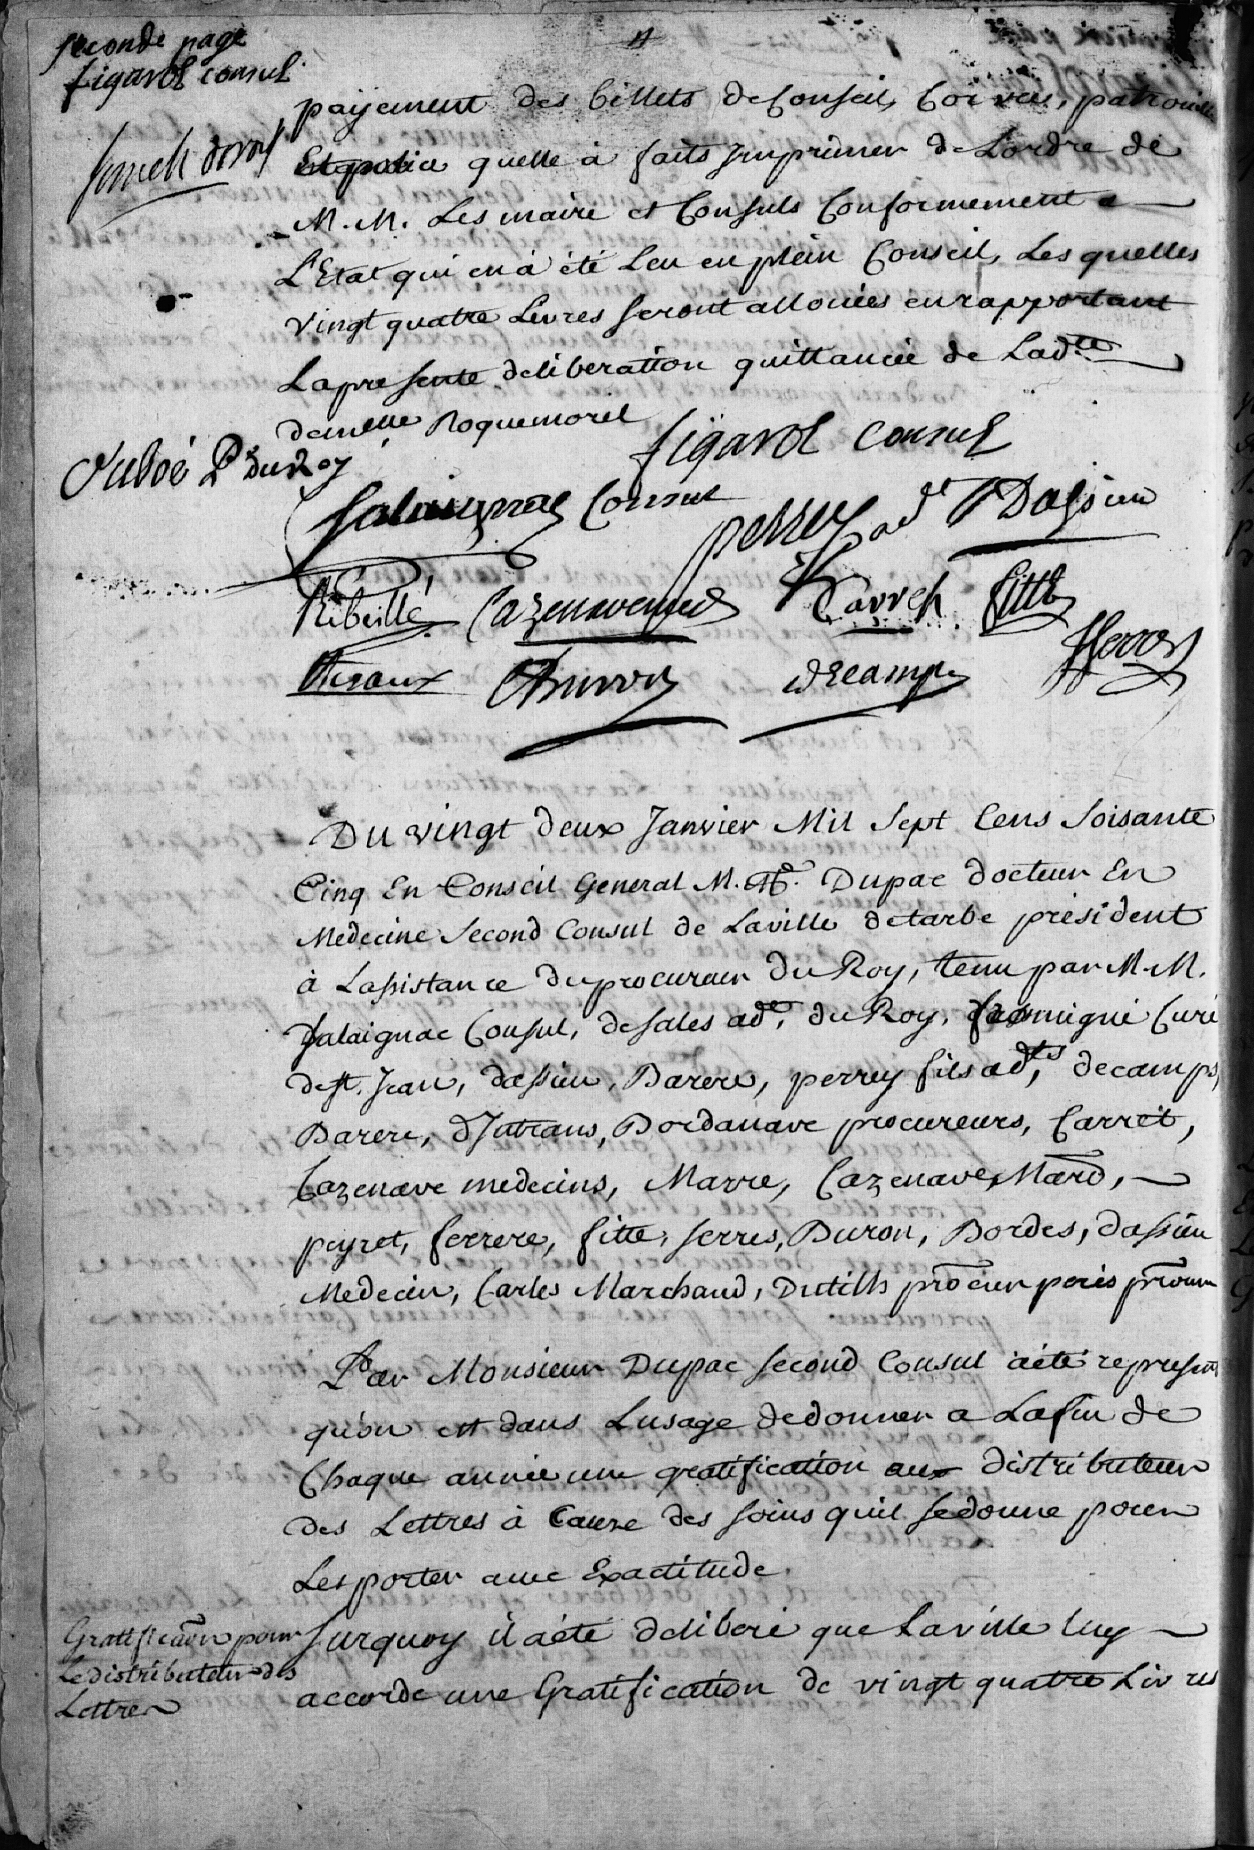 seconde page
figarol consul
payement des billets de Conseil, Corvée, patrouille
quelle à faits Imprimer de Lordre de
M. M. Les maire et Consuls Conformement a
L'Etat qui en a été Leu en plein Conseil, Les quelles
vingt quatre Livres seront allouées en rapportant
La presente deliberation quittancée de Ladte
demelle Roquemorel
figarol consul
Salaignac Consul
perrey adt Dassieu
Ribeille Cazenave med Carret fitte
decamps
Du vingt deux Janvier Mil Sept Cens Soisante
Cinq En Conseil General M. Me. Dupac docteur En
Medecine Second Consul de Laville de tarbe président
à Lassistance du procureur du Roy, tenu par M.M.
Salaignac Consul, desales adt. du Roy, Curé
de St. Jean, dassieu, Barere, perrey fils adts, decamps,
Barere, dIntrans, Bordanave procureurs, Carret,
Cazenave medecins, Marre, Cazenave, Mard,
peyret, ferrere, fitte, serres, Duron, Bordes, dassieu
Medecin, Carles Marchand, Dutilh
Par Monsieur Dupac second Consul a été represen
qu'on est dans Lusage de donner a Lafin de
Chaque année une gratification aux distributeur
des Lettres à Cause des soins quil se donne pour
Les porter avec Exactitude.
Gratification pour
Le distributeur des
Lettres
Surquoy il a été deliberé que Laville luy
accorde une Gratification de vingt quatre Livres